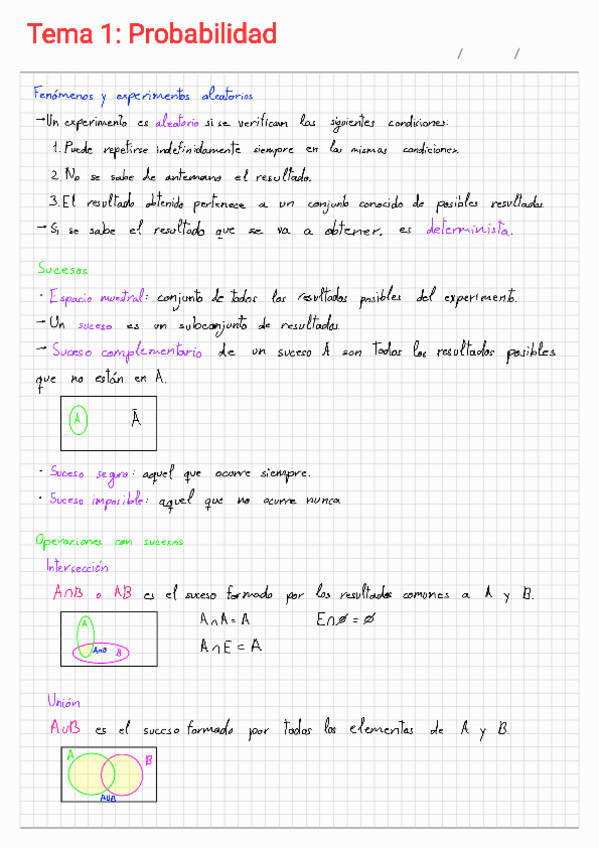 Tema 1: Probabilidad
/ /
Fenómenos y experimentos aleatorios
→Un experimento es aleatorio si se verifican las siguientes condiciones:
1. Puede repetirse indefinidamente siempre en las mismas condiciones.
2. No se sabe de antemano el resultado.
3. El resultado obtenido pertenece a un conjunto conocido de posibles resultados
→ Si se sabe el resultado que se va a obtener, es determinista.
Sucesos
· Espacio muestral: conjunto de todos los resultados posibles del experimento.
→ Un suceso es un subconjunto de resultados
→ Suceso complementario de un suceso A son todos los resultados posibles
que no están en A.
A Ā
· Suceso seguro: aquel que ocurre siempre.
· Suceso imposible: aquel que no ocurre nunca
Operaciones con sucesos
Intersección
A∩B o AB es el suceso formado por los resultados comunes a A y B.
A A∩B B
A∩A = A E∩∅ = ∅
A∩E = A
Unión
A∪B es el suceso formado por todos los elementos de A y B.
A B
A∪B